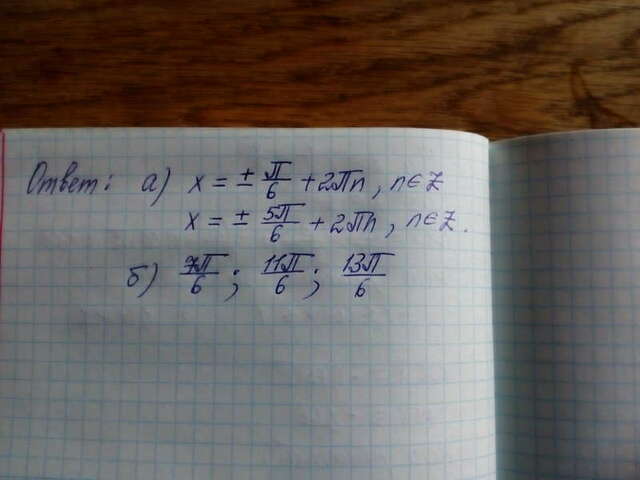 Ответ: а) x = ± π/6 + 2πn, n∈Z
x = ± 5π/6 + 2πn, n∈Z.
б) 7π/6; 11π/6; 13π/6